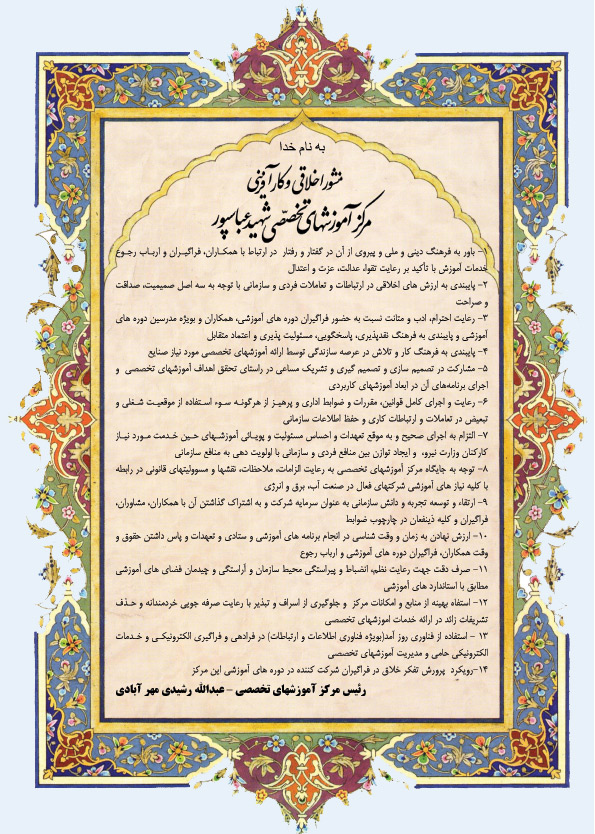 به نام خدا
منشور اخلاقی و کارآفرینی
مرکز آموزشهای تخصّصی شهید عباسپور
۱- باور به فرهنگ دینی و ملی و پیروی از آن در گفتار و رفتار در ارتباط با همکـاران، فراگیـران و اربـاب رجـوع
خدمات آموزش با تأکید بر رعایت تقوا، عدالت، عزت و اعتدال
۲- پایبندی به ارزش های اخلاقی در ارتباطات و تعاملات فردی و سازمانی با توجه به سه اصل صمیمیت، صداقت
و صراحت
۳- رعایت احترام، ادب و متانت نسبت به حضور فراگیران دوره های آموزشی، همکاران و بویژه مدرسین دوره های
آموزشی و پایبندی به فرهنگ نقدپذیری، پاسخگویی، مسئولیت پذیری و اعتماد متقابل
۴- پایبندی به فرهنگ کار و تلاش در عرصه سازندگی توسط ارائه آموزشهای تخصصی مورد نیاز صنایع
۵- مشارکت در تصمیم سازی و تصمیم گیری و تشریک مساعی در راستای تحقق اهداف آموزشهای تخصصی و
اجرای برنامه‌های آن در ابعاد آموزشهای کاربردی
۶- رعایت و اجرای کامل قوانین، مقررات و ضوابط اداری و پرهیـز از هرگونـه سـوء اسـتفاده از موقعیـت شـغلی و
تبعیض در تعاملات و ارتباطات کاری و حفظ اطلاعات سازمانی
۷- التزام به اجرای صحیح و به موقع تعهدات و احساس مسئولیت و پویـائی آموزشـهای حـین خـدمت مـورد نیـاز
کارکنان وزارت نیرو، و ایجاد توازن بین منافع فردی و سازمانی با اولویت دهی به منافع سازمانی
۸- توجه به جایگاه مرکز آموزشهای تخصصی به رعایت الزامات، ملاحظات، نقشها و مسوولیتهای قانونی در رابطه
با کلیه نیاز های آموزشی شرکتهای فعال در صنعت آب، برق و انرژی
۹- ارتقاء و توسعه تجربه و دانش سازمانی به عنوان سرمایه شرکت و به اشتراک گذاشتن آن با همکاران، مشاوران،
فراگیران و کلیه ذینفعان در چارچوب ضوابط
۱۰- ارزش نهادن به زمان و وقت شناسی در انجام برنامه های آموزشی و ستادی و تعهدات و پاس داشتن حقوق و
وقت همکاران، فراگیران دوره های آموزشی و ارباب رجوع
۱۱- صرف دقت جهت رعایت نظم، انضباط و پیراستگی محیط سازمان و آراستگی و چیدمان فضای های آموزشی
مطابق با استاندارد های آموزشی
۱۲- استفاه بهینه از منابع و امکانات مرکز و جلوگیری از اسراف و تبذیر با رعایت صرفه جویی خردمندانه و حـذف
تشریفات زائد در ارائه خدمات اموزشهای تخصصی
۱۳ - استفاده از فناوری روز آمد(بویژه فناوری اطلاعات و ارتباطات) در فرادهی و فراگیری الکترونیکـی و خـدمات
الکترونیکی حامی و مدیریت آموزشهای تخصصی
۱۴-رویکرد پرورش تفکر خلاق در فراگیران شرکت کننده در دوره های آموزشی این مرکز
رئیس مرکز آموزشهای تخصصی – عبدالله رشیدی مهر آبادی